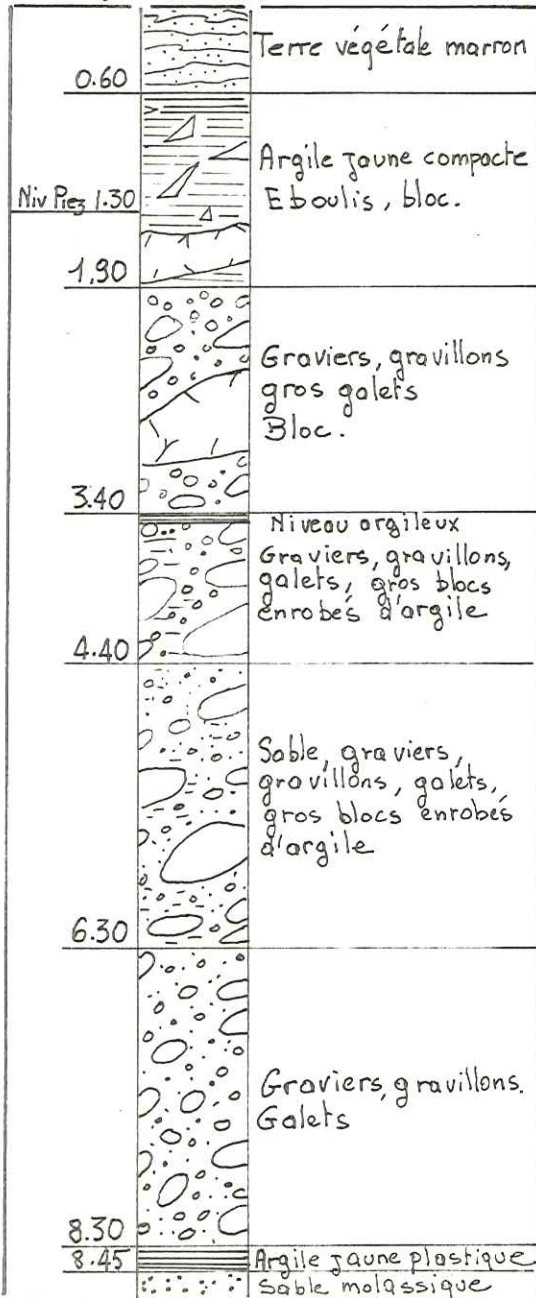 Terre végétale marron
0.60
Argile jaune compacte
Eboulis, bloc.
Niv Piez 1.30
1.90
Graviers, gravillons
gros galets
Bloc.
3.40
Niveau argileux
Graviers, gravillons,
galets, gros blocs
enrobés d'argile
4.40
Sable, graviers,
gravillons, galets,
gros blocs enrobés
d'argile
6.30
Graviers, gravillons.
Galets
8.30
8.45
Argile jaune plastique
Sable molassique